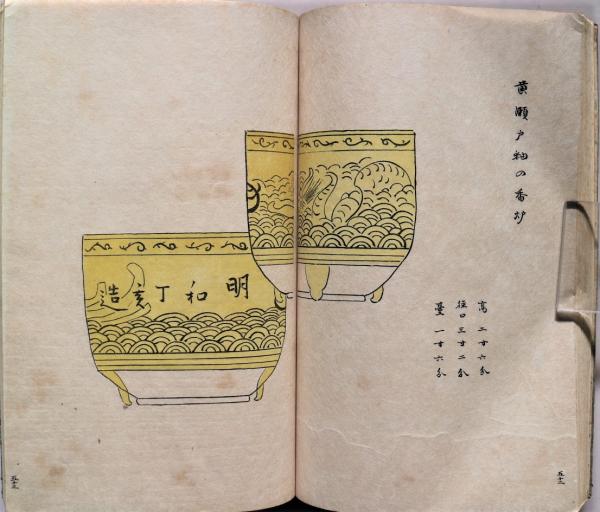 黄瀬戸釉の香炉
高 二寸六分
径口三寸二分
臺 一寸六分
明和丁亥造
五十三
五十三